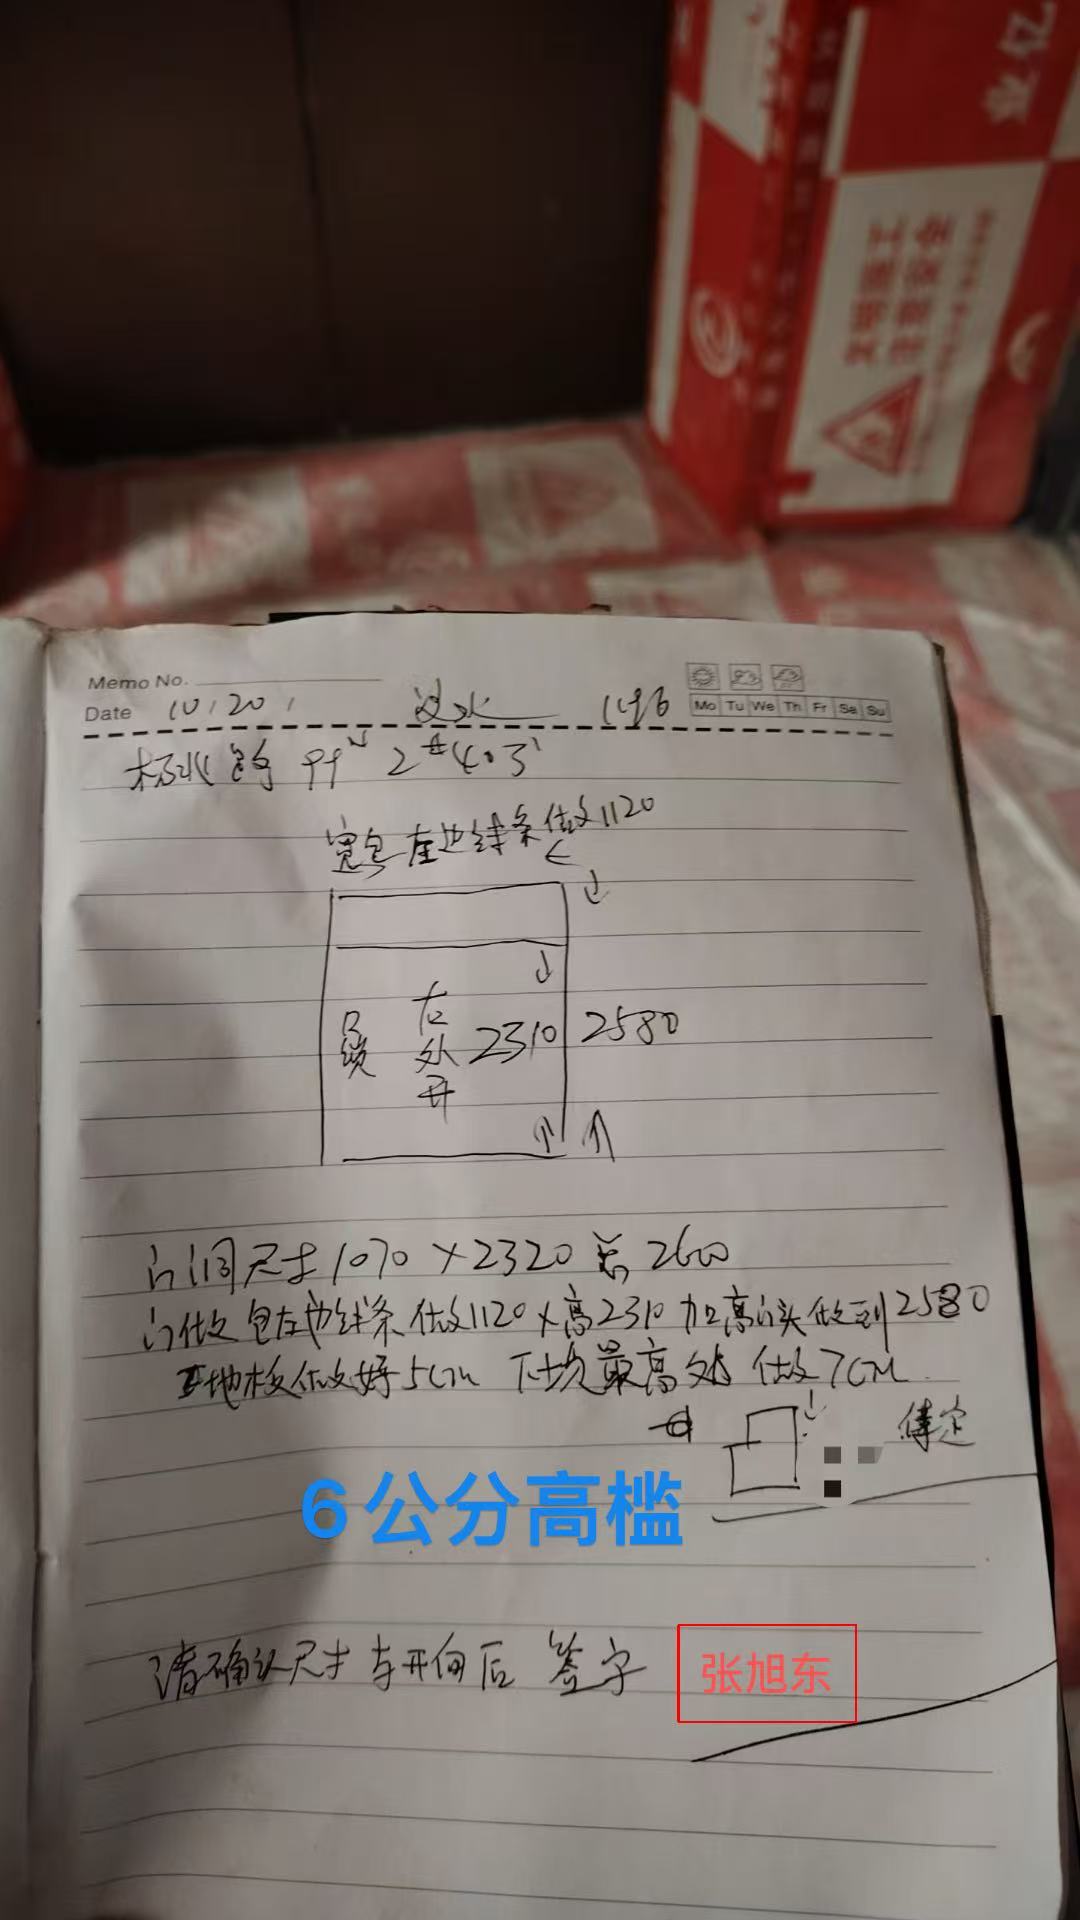 Memo No.
Mo Tu We Th Fr Sa Su
Date 10/20/
2#403
宽包左边线条做1120
右外开
2310
2580
门洞尺寸1070×2320总2600
门做包左边线条做1120×高2310加高门头做到2580
地板做好5cm 下坎最高处做7CM
待定
6公分高槛
请确认尺寸与开向后签字
张旭东